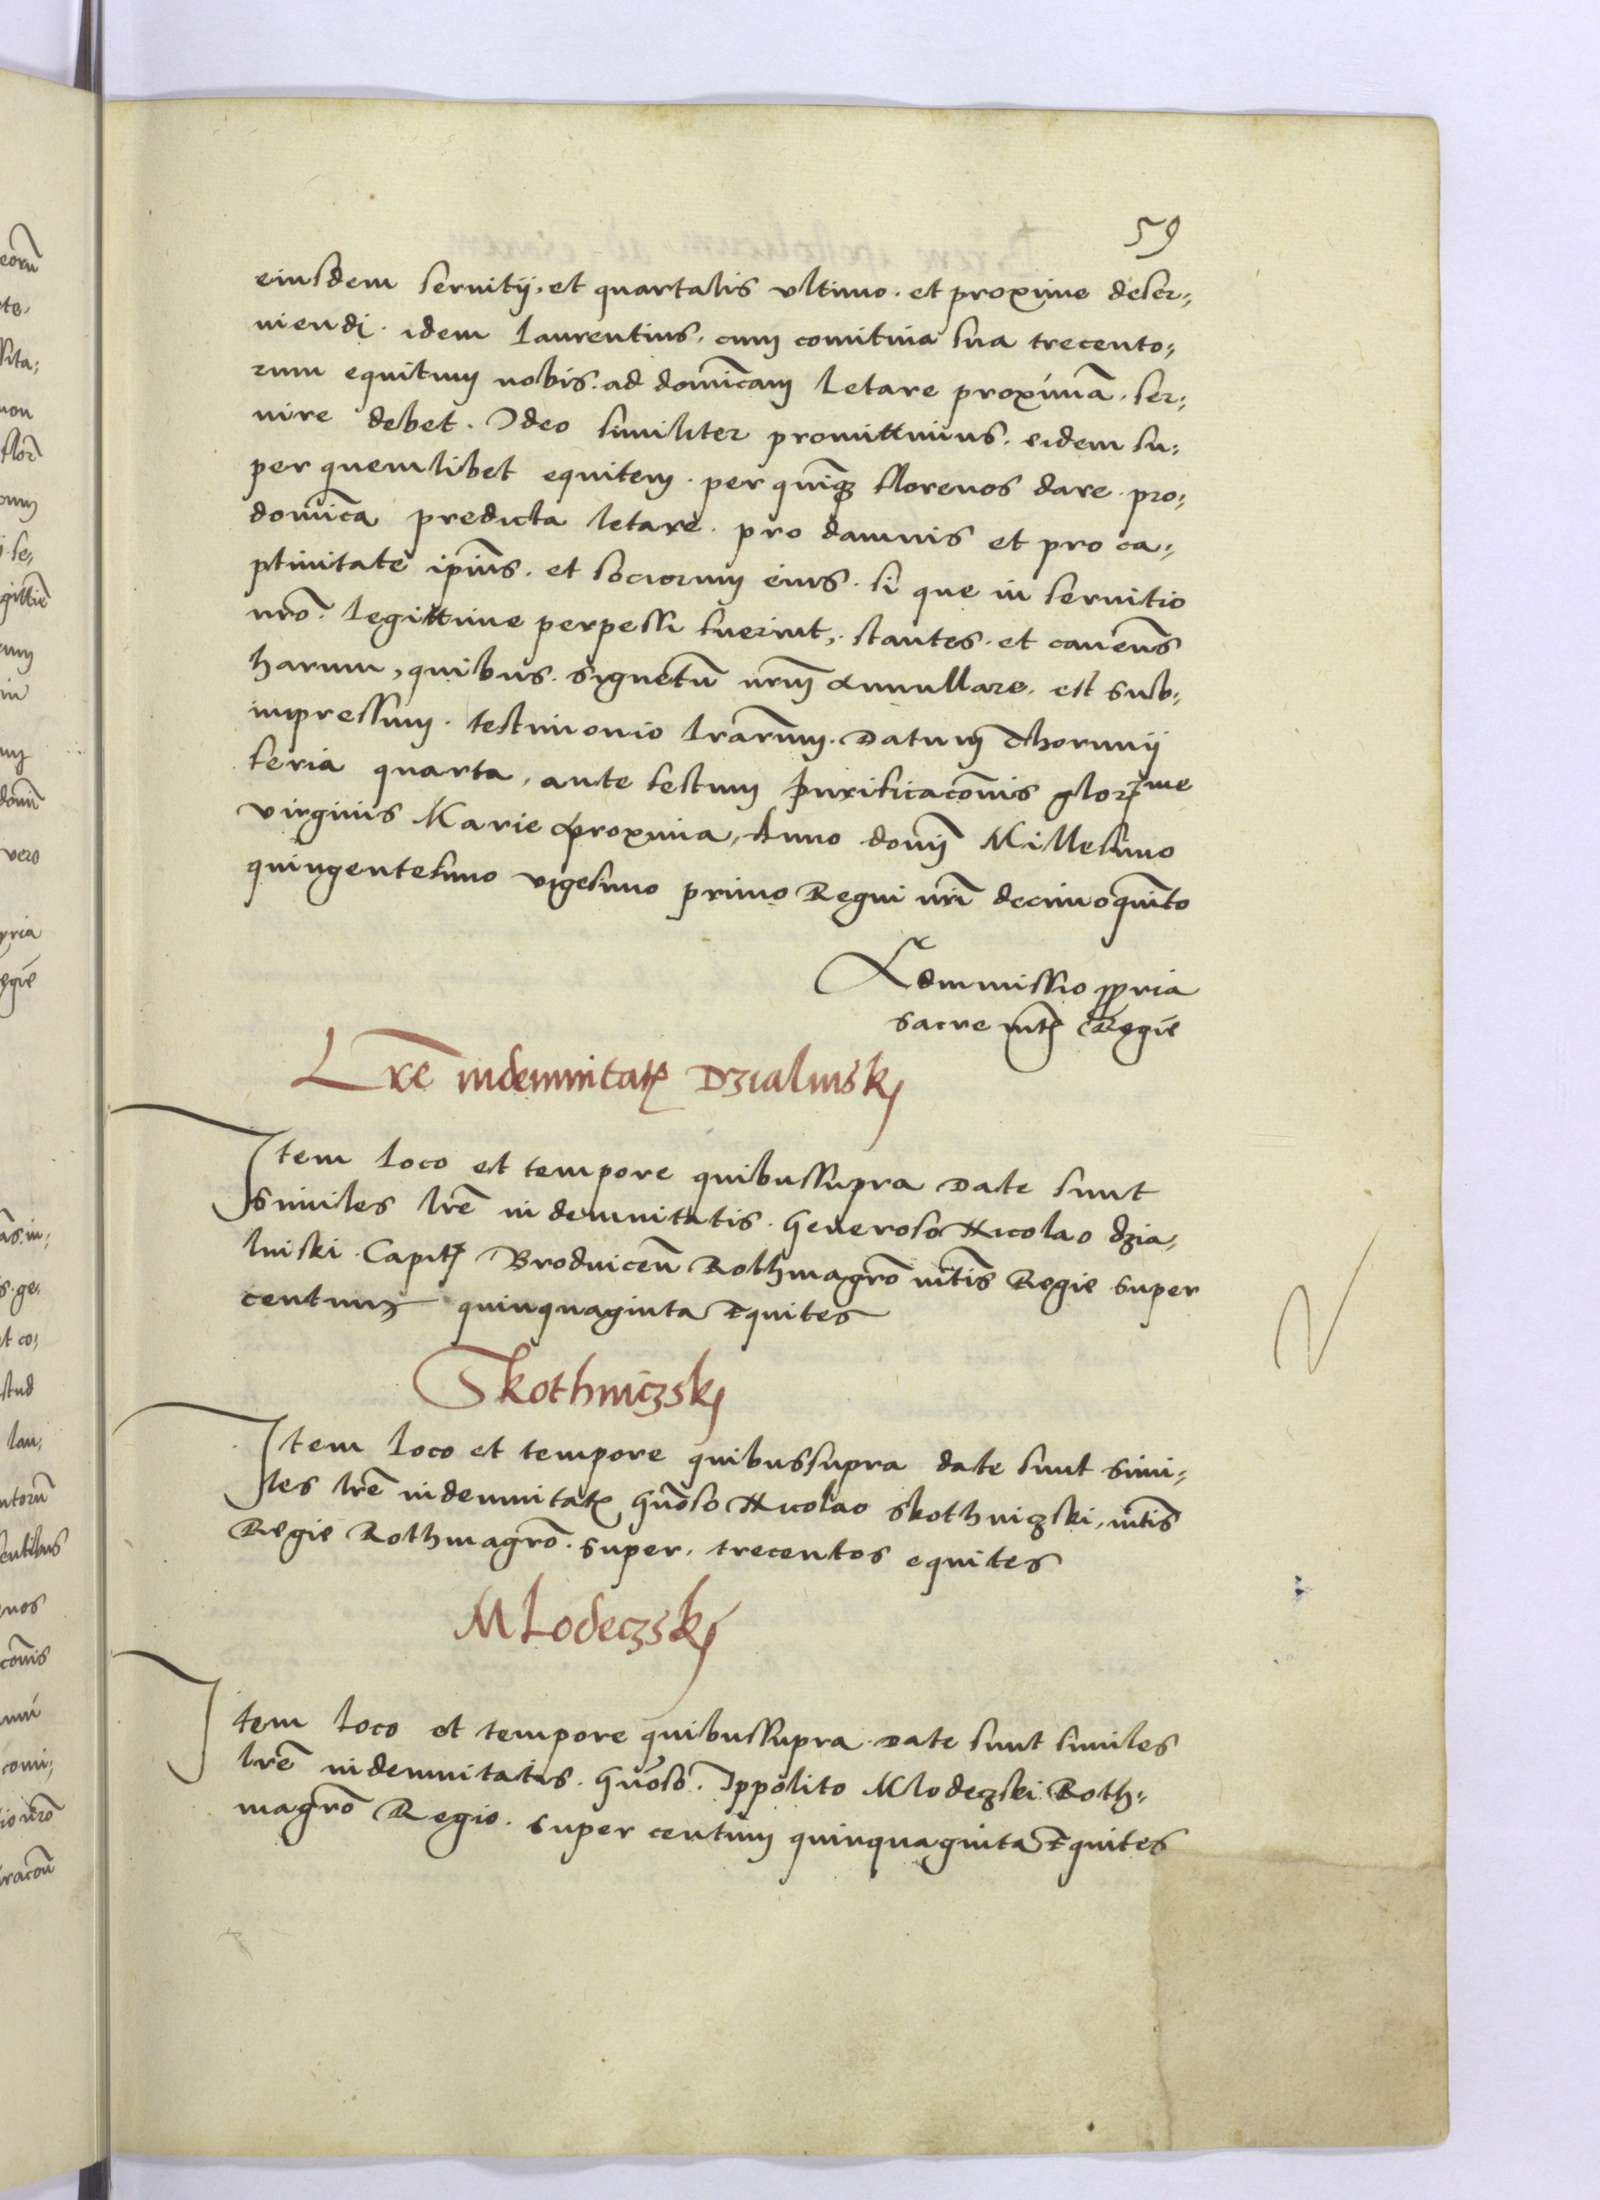 59
eiusdem seruitij. et quartalis vltimo. et proxime deser-
uiendi. idem laurentius. cum comitiua sua trecento-
rum equitum nobis. ad dominicam letare proximā. ser-
uire debet. Ideo similiter promittimus. eidem su-
per quemlibet equitem. per quinqȝ florenos dare. pro
domīca predicta letare. pro damnis et pro ca-
ptiuitate ipīus. et sociorum eius. si que in seruitio
nrō. legittime perpessi fuerint. stantes. et
harum, quibus. signetū nrm̄ Annullare. est sub-
impressum. testimonio lrārum. Datum Thorunij
feria quarta, ante festum Purificacōnis glor̄me
virginis Marie proxima, Anno domj̄ Millesimo
quingentesimo vigesimo primo Regni nrī decimoquīto
Commissio ppria
sacre mtꝭ Regie
Lrē indemnitatꝭ Dzialinskj
Item loco et tempore quibussupra Date sunt
similes lrē indemnitatis. Generoso Nicolao dzia-
linski. Capitꝭ Brodnicen̄ Rothmagrō mtis Regie super
centum quinquaginta Equites
Skothniczskj
Item loco et tempore quibussupra date sunt simi-
les lrē indemnitatꝭ Gn̄oso Nicolao skothniczski, mtis
Regie Rothmagrō. super. trecentos equites
Mlodeczskj
Item loco et tempore quibussupra. Date sunt similes
lrē indemnitatis. Gn̄oso. Ippolito Mlodeczski Roth-
magrō Regio. super centum quinquaginta Equites